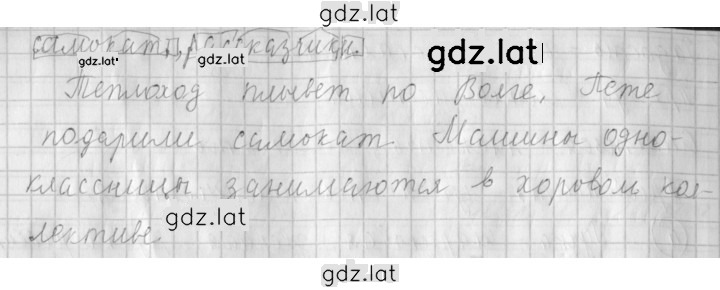 gdz.lat
самокат, рассказчики.
gdz.lat
gdz.lat
gdz.lat
Теплоход плывет по Волге, Пете
подарили самокат. Машины одно-
классницы занимаются в хоровом кол-
лективе.
gdz.lat
gdz.lat